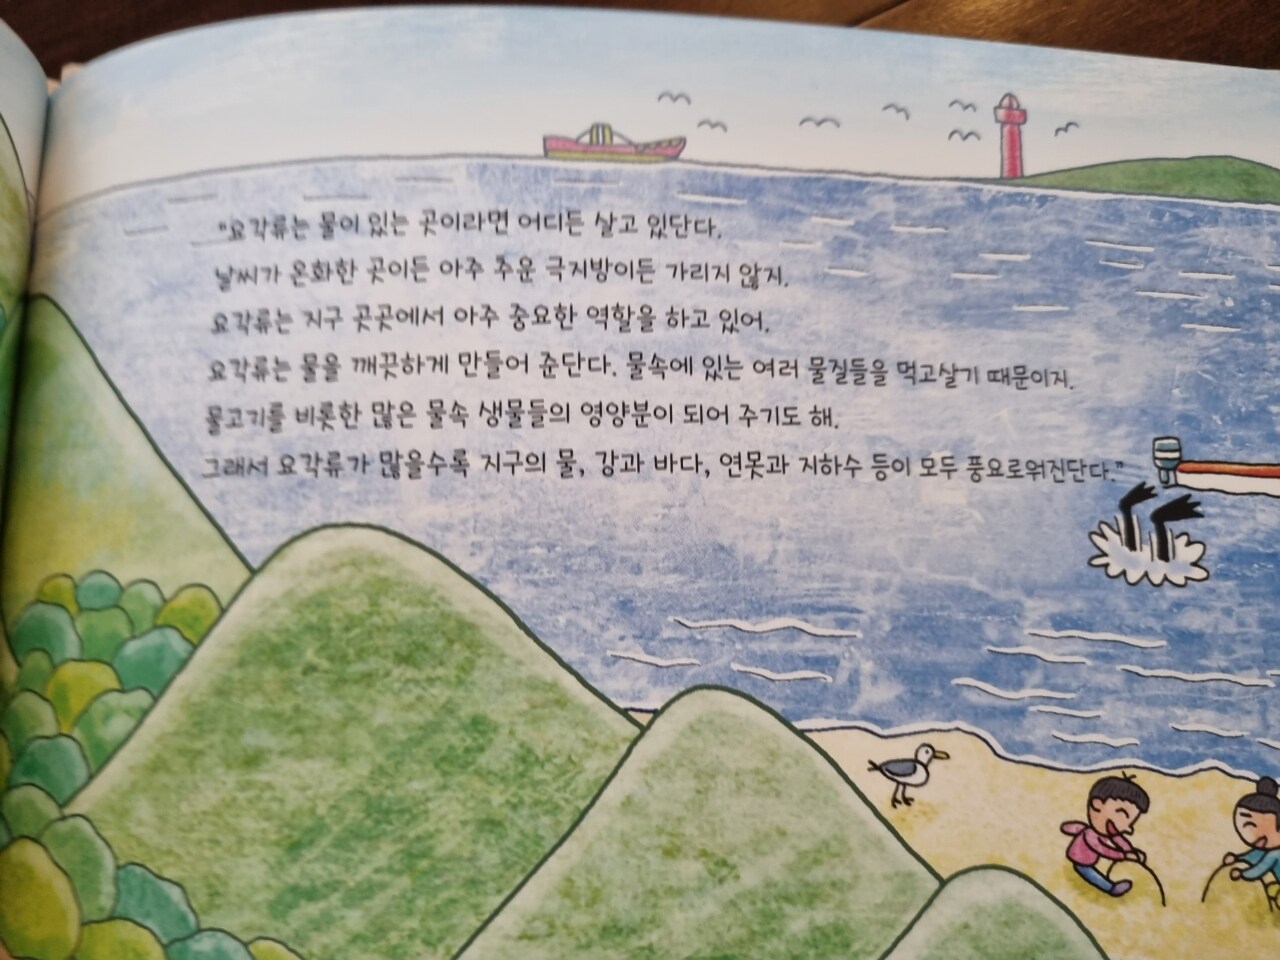 "요각류는 물이 있는 곳이라면 어디든 살고 있단다.
날씨가 온화한 곳이든 아주 추운 극지방이든 가리지 않지.
요각류는 지구 곳곳에서 아주 중요한 역할을 하고 있어.
요각류는 물을 깨끗하게 만들어 준단다. 물속에 있는 여러 물질들을 먹고살기 때문이지.
물고기를 비롯한 많은 물속 생물들의 영양분이 되어 주기도 해.
그래서 요각류가 많을수록 지구의 물, 강과 바다, 연못과 지하수 등이 모두 풍요로워진단다."